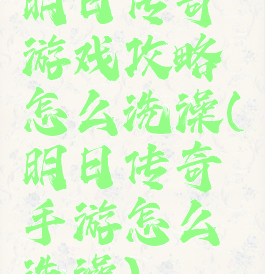 明日传奇
游戏攻略
怎么洗澡(
明日传奇
手游怎么
洗澡)